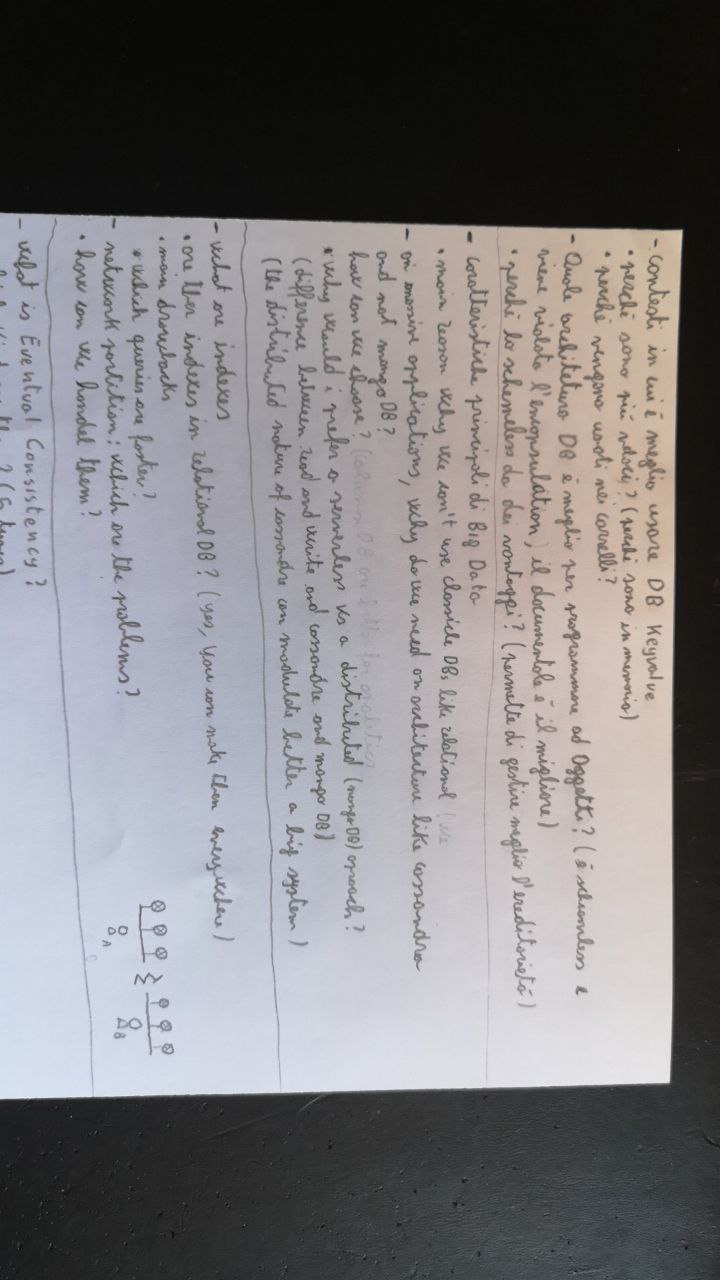 - contesti in cui è meglio usare DB Keyvalue
• perché sono più veloci? (perché sono in memoria)
• perché vengono usati nei carrelli?
- Quale architettura DB è meglio per programmare ad Oggetti? (è schemaless e
viene violato l'encapsulation) il documentale è il migliore)
• perché lo schemaless da dei vantaggi? (permette di gestire meglio l'ereditarietà)
- caratteristiche principali di Big Data
• main reason why we can't use classicle DBs like relational
- in massive applications, why do we need an architecture like cassandra
and not mongo DB?
how can we choose? (column DB are better for analitics
• Why would i prefer a serverless vs a distributed (mongoDB) approach?
(difference between read and write and cassandra and mongo DB)
(the distributed nature of cassandra can modulate better a big system)
- what are indexes
• are ther indexes in relational DB? (yes, you can make them everywhere)
• main drawbacks
• which queries are faster?
- network partition: which are the problems?
• how can we handel them?
A
B
- what is Eventual Consistency?